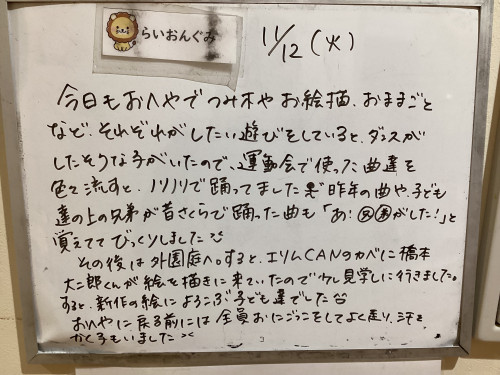 らいおんぐみ
11/12(火)
今日もおへやでつみ木やお絵描、おままごと
など、それぞれがしたい遊びをしていると、ダンスが
したそうな子がいたので、運動会で使った曲達を
色々流すと、ノリノリで踊ってました 昨年の曲や、子ども
達の上の兄弟が昔さくらで踊った曲も「あ!がした!」と
覚えててびっくりしました
その後は外園庭へ。すると、エリムCANのカベに橋本
大二郎くんが絵を描きに来ていたので見学しに行きました。
すると、新作の絵によろこぶ子ども達でした
おへやに戻る前には全員おにごっこをしてよく走り、汗を
かく子もいました